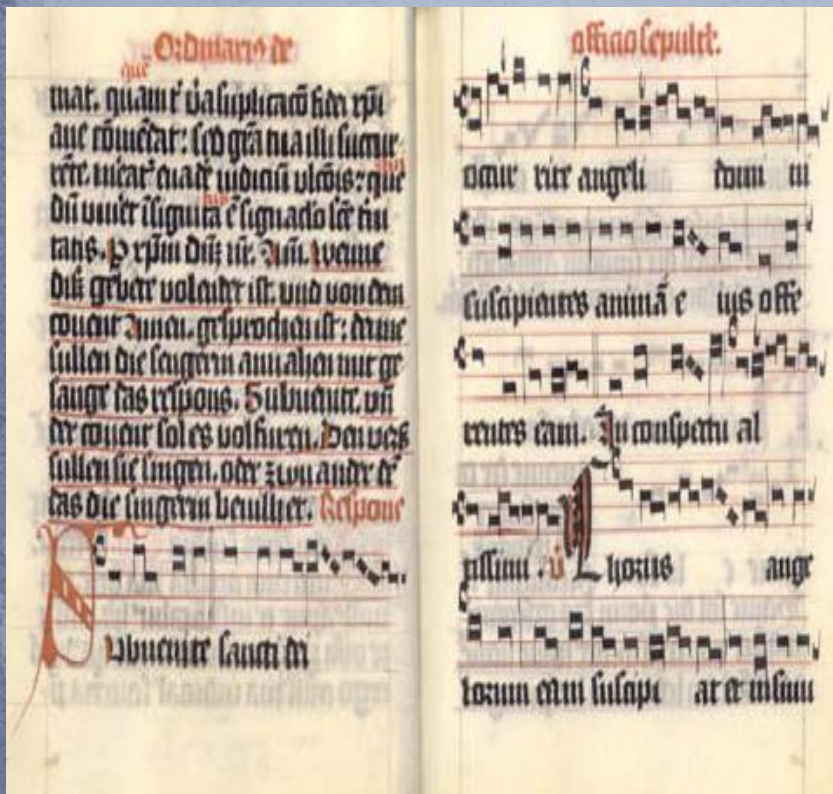 Ordinariũ de
que
mat. quam t̃ v̾a suplicacõ fidei xp̃i
ane cõmẽdat: sed gr̃a tua illi succur
rẽte. meat̾ euade̾ iudiciũ vlcõis: que
dũ viuẽt ĩsignita ẽ signac̾lo sc̃e t̾ni
tatis. P xp̃m dñz nr̃. Am̃. Wenne
diß gebet volendet ist. vnd von dem
conuent Amen. gesprochen ist: denne
sullen die sengerin anuahen mit ge
sange das respons. Subuenite. vñ
der conuent sol es volfuren. Den verß
sullen sie singen. oder zwu ander dẽ
das die singerin beuilhet. Respons
Subuenite sancti dei
officio sepultr̃.
occur rite angeli domi ni
suscipientes animã e ius offe
rentes eam. In conspectu al
tissimi. v̾ Chorus ange
lorum eam suscipi at et in sinu